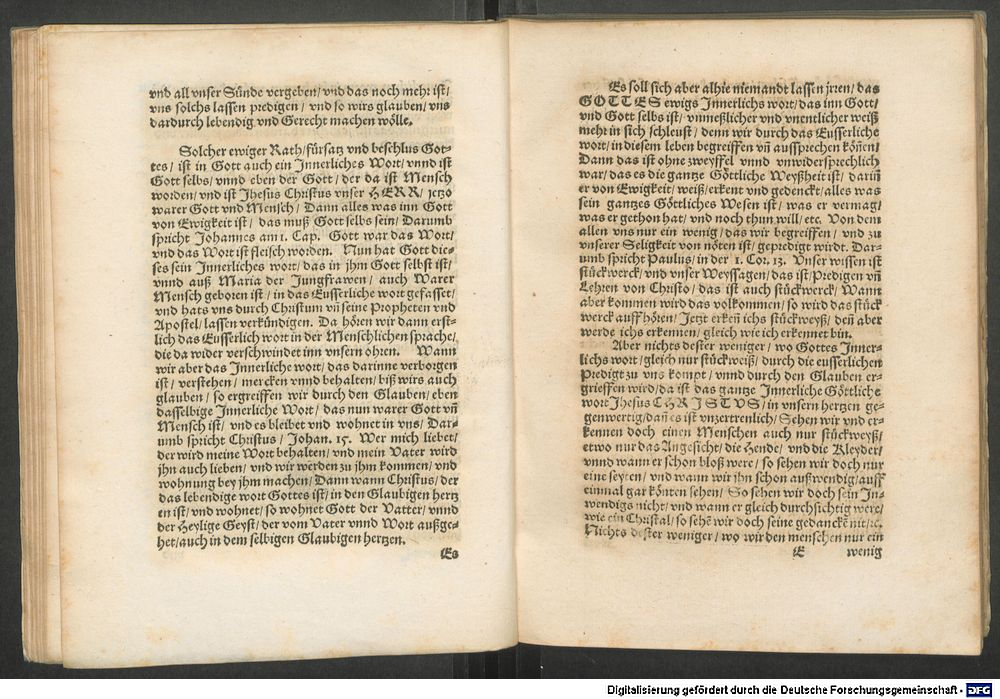 vnd all vnser Sünde vergeben/ vnd das noch mehr ist/
vns solchs lassen predigen / vnd so wirs glauben/ vns
dardurch lebendig vnd Gerecht machen wölle.
Solcher ewiger Rath/ fürsatz vnd beschlus Got-
tes / ist in Gott auch ein Innerliches Wort/ vnnd ist
Gott selbs/ vnnd eben der Gott/ der da ist Mensch
worden/ vnd ist Jhesus Christus vnser HERR/ jetzo
warer Gott vnd Mensch/ Dann alles was inn Gott
von Ewigkeit ist/ das muß Gott selbs sein/ Darumb
spricht Johannes am 1. Cap. Gott war das Wort/
vnd das Wort ist fleisch worden. Nun hat Gott die-
ses sein Innerliches wort/ das in jhm Gott selbst ist/
vnnd auß Maria der Jungfrawen/ auch Warer
Mensch geboren ist/ in das Eusserliche wort gefasset/
vnd hats vns durch Christum vn̄ seine Propheten vnd
Apostel/ lassen verkündigen. Da hören wir dann erst-
lich das Eusserlich wort in der Menschlichen sprache/
die da wider verschwindet inn vnsern ohren. Wann
wir aber das Innerliche wort/ das darinne verborgen
ist/ verstehen/ mercken vnnd behalten/ biß wirs auch
glauben/ so ergreiffen wir durch den Glauben/ eben
dasselbige Innerliche Wort/ das nun warer Gott vn̄
Mensch ist/ vnd es bleibet vnd wohnet in vns/ Dar-
umb spricht Christus/ Johan. 15. Wer mich liebet/
der wird meine Wort behalten/ vnd mein Vater wird
jhn auch lieben/ vnd wir werden zu jhm kommen/ vnd
wohnung bey jhm machen/ Dann wann Christus/ der
das lebendige wort Gottes ist/ in den Glaubigen hertz
en ist/ vnd wohnet/ so wohnet Gott der Vatter/ vnnd
der Heylige Geyst/ der vom Vater vnnd Wort außge-
het/ auch in dem selbigen Glaubigen hertzen.
Es
Es soll sich aber alhie niemandt lassen jrren/ das
GOTTES ewigs Innerlichs wort/ das inn Gott/
vnd Gott selbs ist/ vnmeßlicher vnd vnentlicher weiß
mehr in sich schleust/ denn wir durch das Eusserliche
wort/ in diesem leben begreiffen vn̄ aussprechen kön̄en/
Dann das ist ohne zweyffel vnnd vnwidersprechlich
war/ das es die gantze Göttliche Weyßheit ist/ darin̄
er von Ewigkeit/ weiß/ erkent vnd gedenckt/ alles was
sein gantzes Göttliches Wesen ist/ was er vermag/
was er gethon hat/ vnd noch thun will/ etc. Von dem
allen vns nur ein wenig/ das wir begreiffen/ vnd zu
vnserer Seligkeit von nöten ist/ gepredigt wirdt. Dar-
umb spricht Paulus/ in der 1. Cor. 13. Vnser wissen ist
stückwerck/ vnd vnser Weyssagen/ das ist/ Predigen vn̄
Lehren von Christo/ das ist auch stückwerck/ Wann
aber kommen wird das volkommen/ so wird das stück
werck auffhören/ Jetzt erken̄ ichs stückweyß/ den̄ aber
werde ichs erkennen/ gleich wie ich erkennet bin.
Aber nichts dester weniger/ wo Gottes Inner-
lichs wort/ gleich nur stückweiß/ durch die eusserlichen
Predigt zu vns kompt/ vnnd durch den Glauben er-
grieffen wird/ da ist das gantze Innerliche Göttliche
wort Jhesus CHRISTVS/ in vnsern hertzen ge-
genwertig/ dan̄ es ist vnzertrenlich/ Sehen wir vnd er-
kennen doch einen Menschen auch nur stückweyß/
etwo nur das Angesicht/ die Hende/ vnd die Kleyder/
vnnd wann er schon bloß were/ so sehen wir doch nur
eine seyten/ vnd wann wir jhn schon außwendig/ auff
einmal gar könten sehen/ So sehen wir doch sein In-
wendigs nicht/ vnd wann er gleich durchsichtig were/
wie ein Christal/ so sehē wir doch seine gedanckē nit/ ꝛc.
Nichts dester weniger/ wo wir den menschen nur ein
E wenig
Digitalisierung gefördert durch die Deutsche Forschungsgemeinschaft - DFG